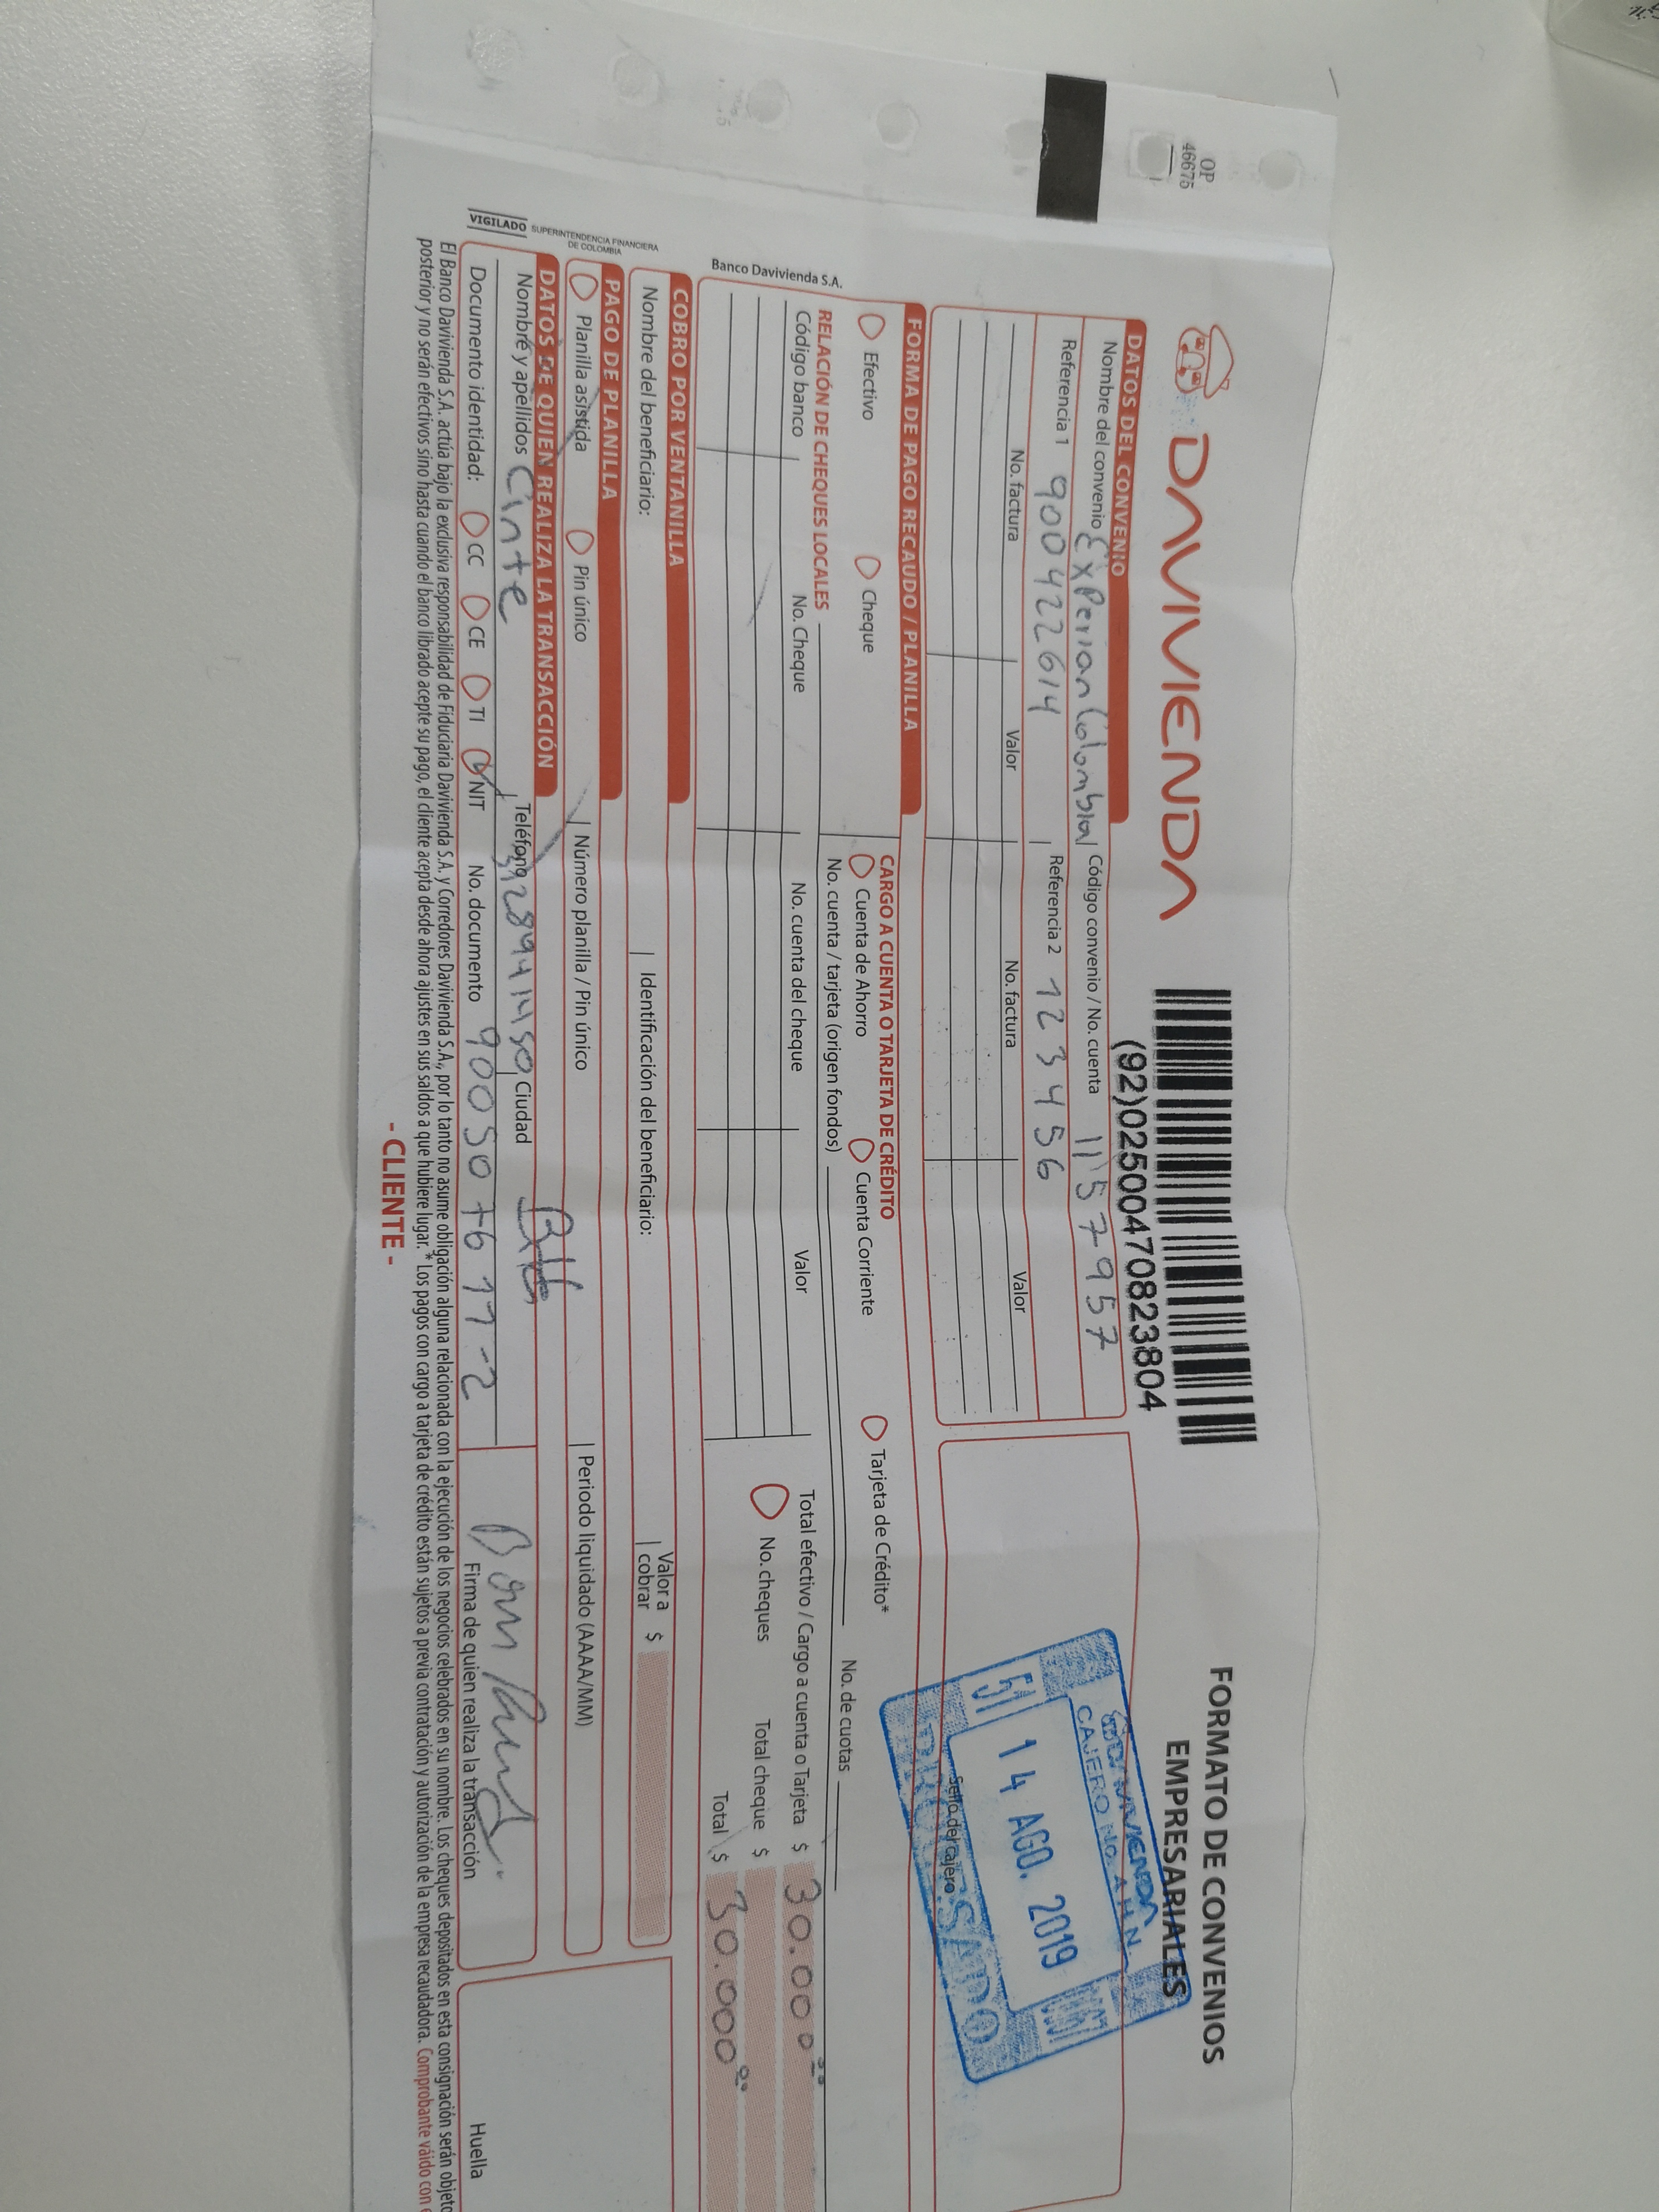 OP
46675
DAVIVIENDA
(92)02500470823804
FORMATO DE CONVENIOS
EMPRESARIALES
DATOS DEL CONVENIO
Nombre del convenio Experian Colombia Código convenio / No. cuenta 1157957
Referencia 1 900422614 Referencia 2 123456
No. factura Valor No. factura Valor
DAVIVIENDA
CAJERO NO.
51 14 AGO. 2019
Sello del cajero
PROCESADO
FORMA DE PAGO RECAUDO / PLANILLA
Efectivo Cheque
CARGO A CUENTA O TARJETA DE CRÉDITO
Cuenta de Ahorro Cuenta Corriente Tarjeta de Crédito*
No. cuenta / tarjeta (origen fondos) No. de cuotas
RELACIÓN DE CHEQUES LOCALES
Código banco No. Cheque No. cuenta del cheque Valor
Total efectivo / Cargo a cuenta o Tarjeta $ 30.000 00
No. cheques Total cheque $
Total $ 30.000 00
Banco Davivienda S.A.
COBRO POR VENTANILLA
Nombre del beneficiario: Identificación del beneficiario: Valor a cobrar $
PAGO DE PLANILLA
Planilla asistida Pin único Número planilla / Pin único Periodo liquidado (AAAA/MM)
DATOS DE QUIEN REALIZA LA TRANSACCIÓN
Nombre y apellidos Cinte Teléfono Ciudad
Documento identidad: CC CE TI NIT No. documento
Firma de quien realiza la transacción
Huella
VIGILADO SUPERINTENDENCIA FINANCIERA
DE COLOMBIA
El Banco Davivienda S.A. actúa bajo la exclusiva responsabilidad de Fiduciaria Davivienda S.A. y Corredores Davivienda S.A., por lo tanto no asume obligación alguna relacionada con la ejecución de los negocios celebrados en su nombre. Los cheques depositados en esta consignación serán objeto
posterior y no serán efectivos sino hasta cuando el banco librado acepte su pago, el cliente acepta desde ahora ajustes en sus saldos a que hubiere lugar. * Los pagos con cargo a tarjeta de crédito están sujetos a previa contratación y autorización de la empresa recaudadora. Comprobante váido con
- CLIENTE -